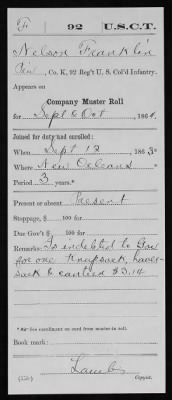 F 92 U.S.C.T.
Nelson Franklin
Co. K, 92 Reg't U. S. Col'd Infantry.
Appears on
Company Muster Roll
for Sept & Oct, 1864.
Joined for duty and enrolled:
When Sept 12, 1863*
Where New Orleans
Period 3 years.*
Present or absent Present
Stoppage, $ 100 for
Due Gov't $ 100 for
Remarks: Is indebted to Gov
for one Knapsack, haver-
sack & canteen $3.14
*See enrollment on card from muster-in roll.
Book mark:
Copyist.